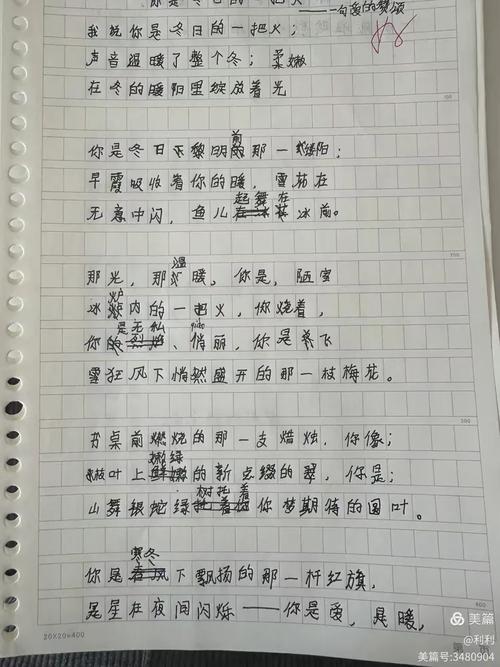 你是冬日的一把火
——一句爱的赞颂
我说你是冬日的一把火；
声音温暖了整个冬；柔嫩
在冬的暖阳里绽放着光
100
你是冬日下黎明前那一缕阳；
早霞吸收着你的暖，雪花在
无意中闪，鱼儿起舞在冰前。
200
那光，那温暖，你是，陋室
冰炉内的一把火，你烧着，
你是无私、俏丽，你是养飞
qiào
雪狂风下悄然盛开的那一枝梅花。
300
书桌前燃烧的那一支焟烛，你像；
枝叶上嫩绿的新点缀的翠，你是；
山舞银蛇绿树托着你梦期待的圆叶。
你是寒冬下飘扬的那一杆红旗，
是星在夜间闪烁——你是爱，是暖，
400
20X20=400
美篇
@利利
美篇号:3480904